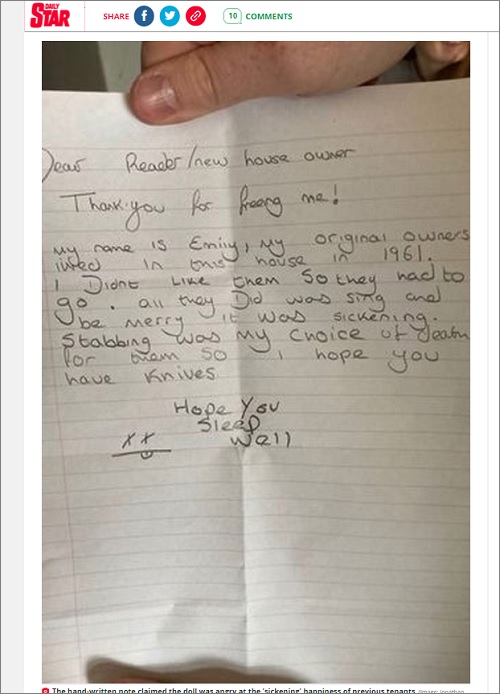 DAILY
STAR
SHARE
10 COMMENTS
Dear Reader/new house owner
Thankyou for freeing me!
My name is Emily, My original owners
lived in this house in 1961.
I Didnt Like them So they had to
go. all they Did was sing and
be merry it was sickening.
Stabbing was My Choice of death
for them So i hope you
have Knives
Hope You
Sleep
Well
XX
The hand-written note claimed the doll was angry at the 'sickening' happiness of previous tenants (Image: Jonathan